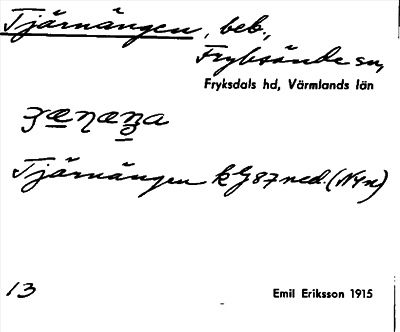 Tjärnängen, beb.,
Fryksände sn,
Fryksdals hd, Värmlands län
Tjärnängen kG 87 ned. (N4n)
13
Emil Eriksson 1915